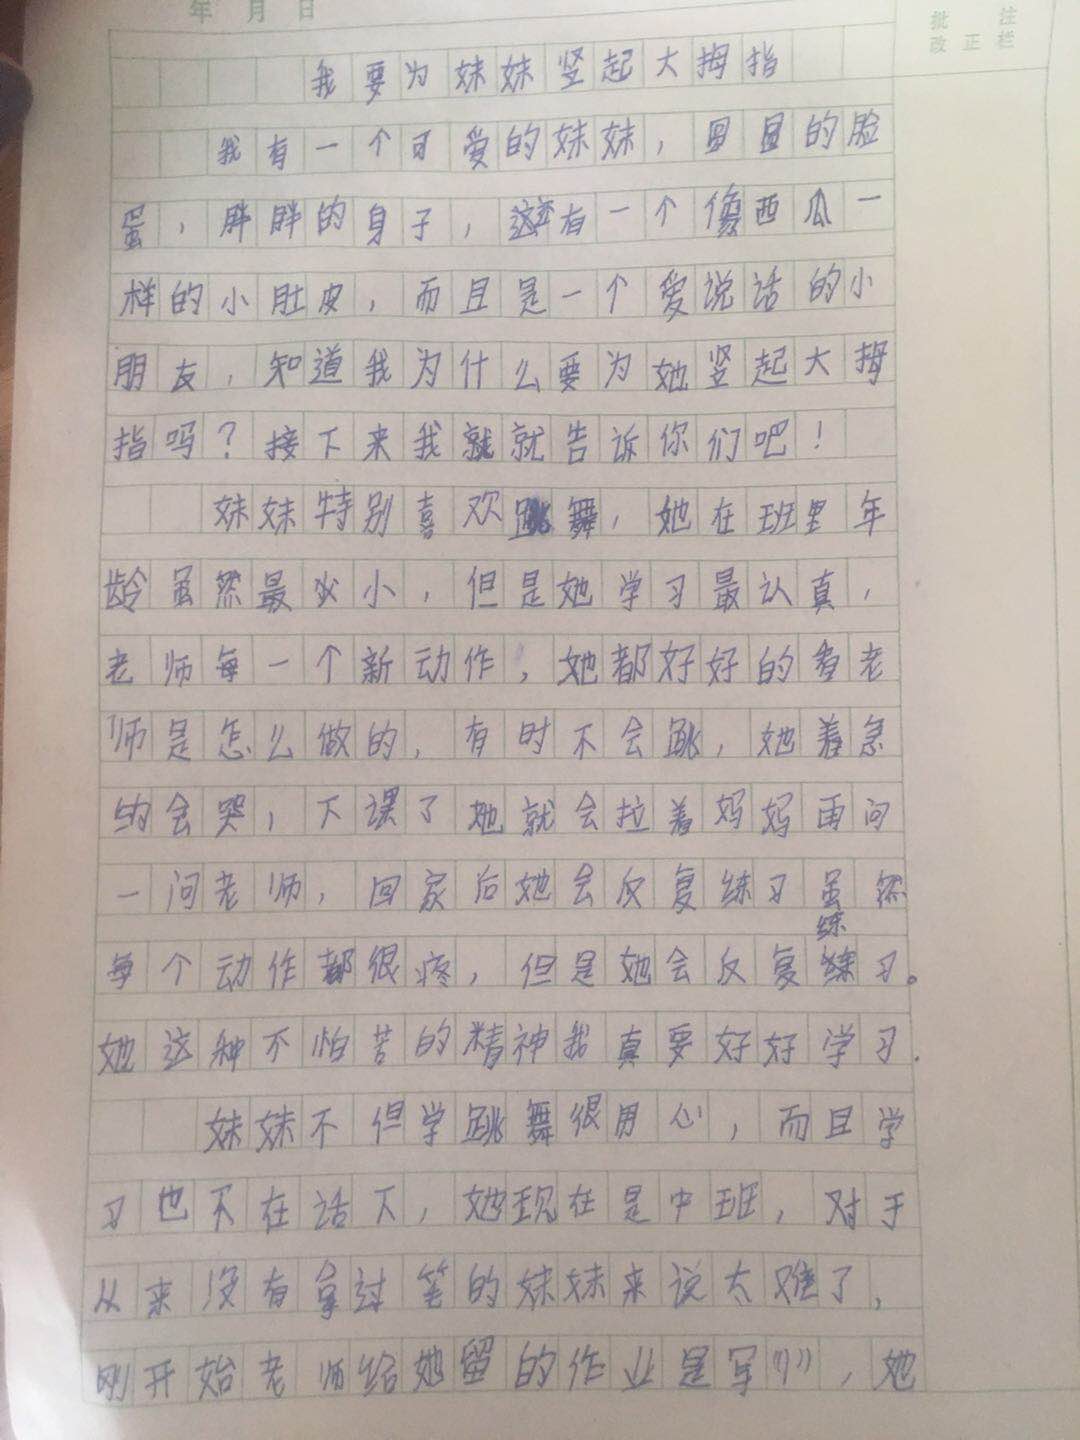 年 月 日
批 注
改 正 栏
我要为妹妹竖起大拇指
我有一个可爱的妹妹，圆圆的脸
蛋，胖胖的身子，还有一个像西瓜一
样的小肚皮，而且是一个爱说话的小
朋友，知道我为什么要为她竖起大拇
指吗？接下来我就就告诉你们吧！
妹妹特别喜欢跳舞，她在班里年
龄虽然最小，但是她学习最认真，
老师每一个新动作，她都好好的看老
师是怎么做的，有时不会跳，她着急
的会哭，下课了她就会拉着妈妈再问
一问老师，回家后她会反复练习虽然
每个动作都很疼，但是她会反复练习。
她这种不怕苦的精神我真要好好学习.
妹妹不但学跳舞很用心，而且学
习也不在话下，她现在是中班，对于
从来没有拿过笔的妹妹来说太难了，
刚开始老师给她留的作业是写“1”，她